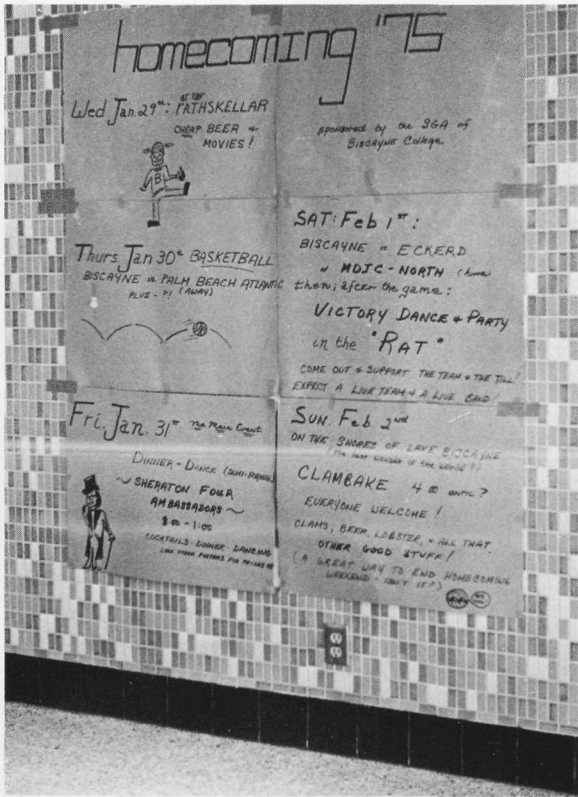 homecoming '75
Wed Jan. 29th: AT THE RATHSKELLAR
CHEAP BEER +
MOVIES!
B
sponsored by the SGA of
BISCAYNE COLLEGE
Thurs. Jan 30th BASKETBALL
BISCAYNE vs. PALM BEACH ATLANTIC
(AWAY)
SAT. Feb 1ST:
BISCAYNE vs ECKERD
at MDJC-NORTH (home
then; after the game:
VICTORY DANCE + PARTY
in the "RAT"
COME OUT & SUPPORT THE TEAM & THE TILL!
EXPECT A LIVE TEAM & A LIVE BAND!
Fri. Jan. 31st The Main Event
DINNER-DANCE (SEMI-FORMAL)
~ SHERATON FOUR
AMBASSADORS ~
8:00 - 1:00
COCKTAILS-DINNER-DANCING
SUN. Feb 2nd
ON THE SHORES OF LAKE BISCAYNE
(The last wonder of the world!!)
CLAMBAKE 4:00 UNTIL?
EVERYONE WELCOME!
CLAMS, BEER, LOBSTER, & ALL THAT
OTHER GOOD STUFF!
(A GREAT WAY TO END HOMECOMING
WEEKEND - ISN'T IT?)